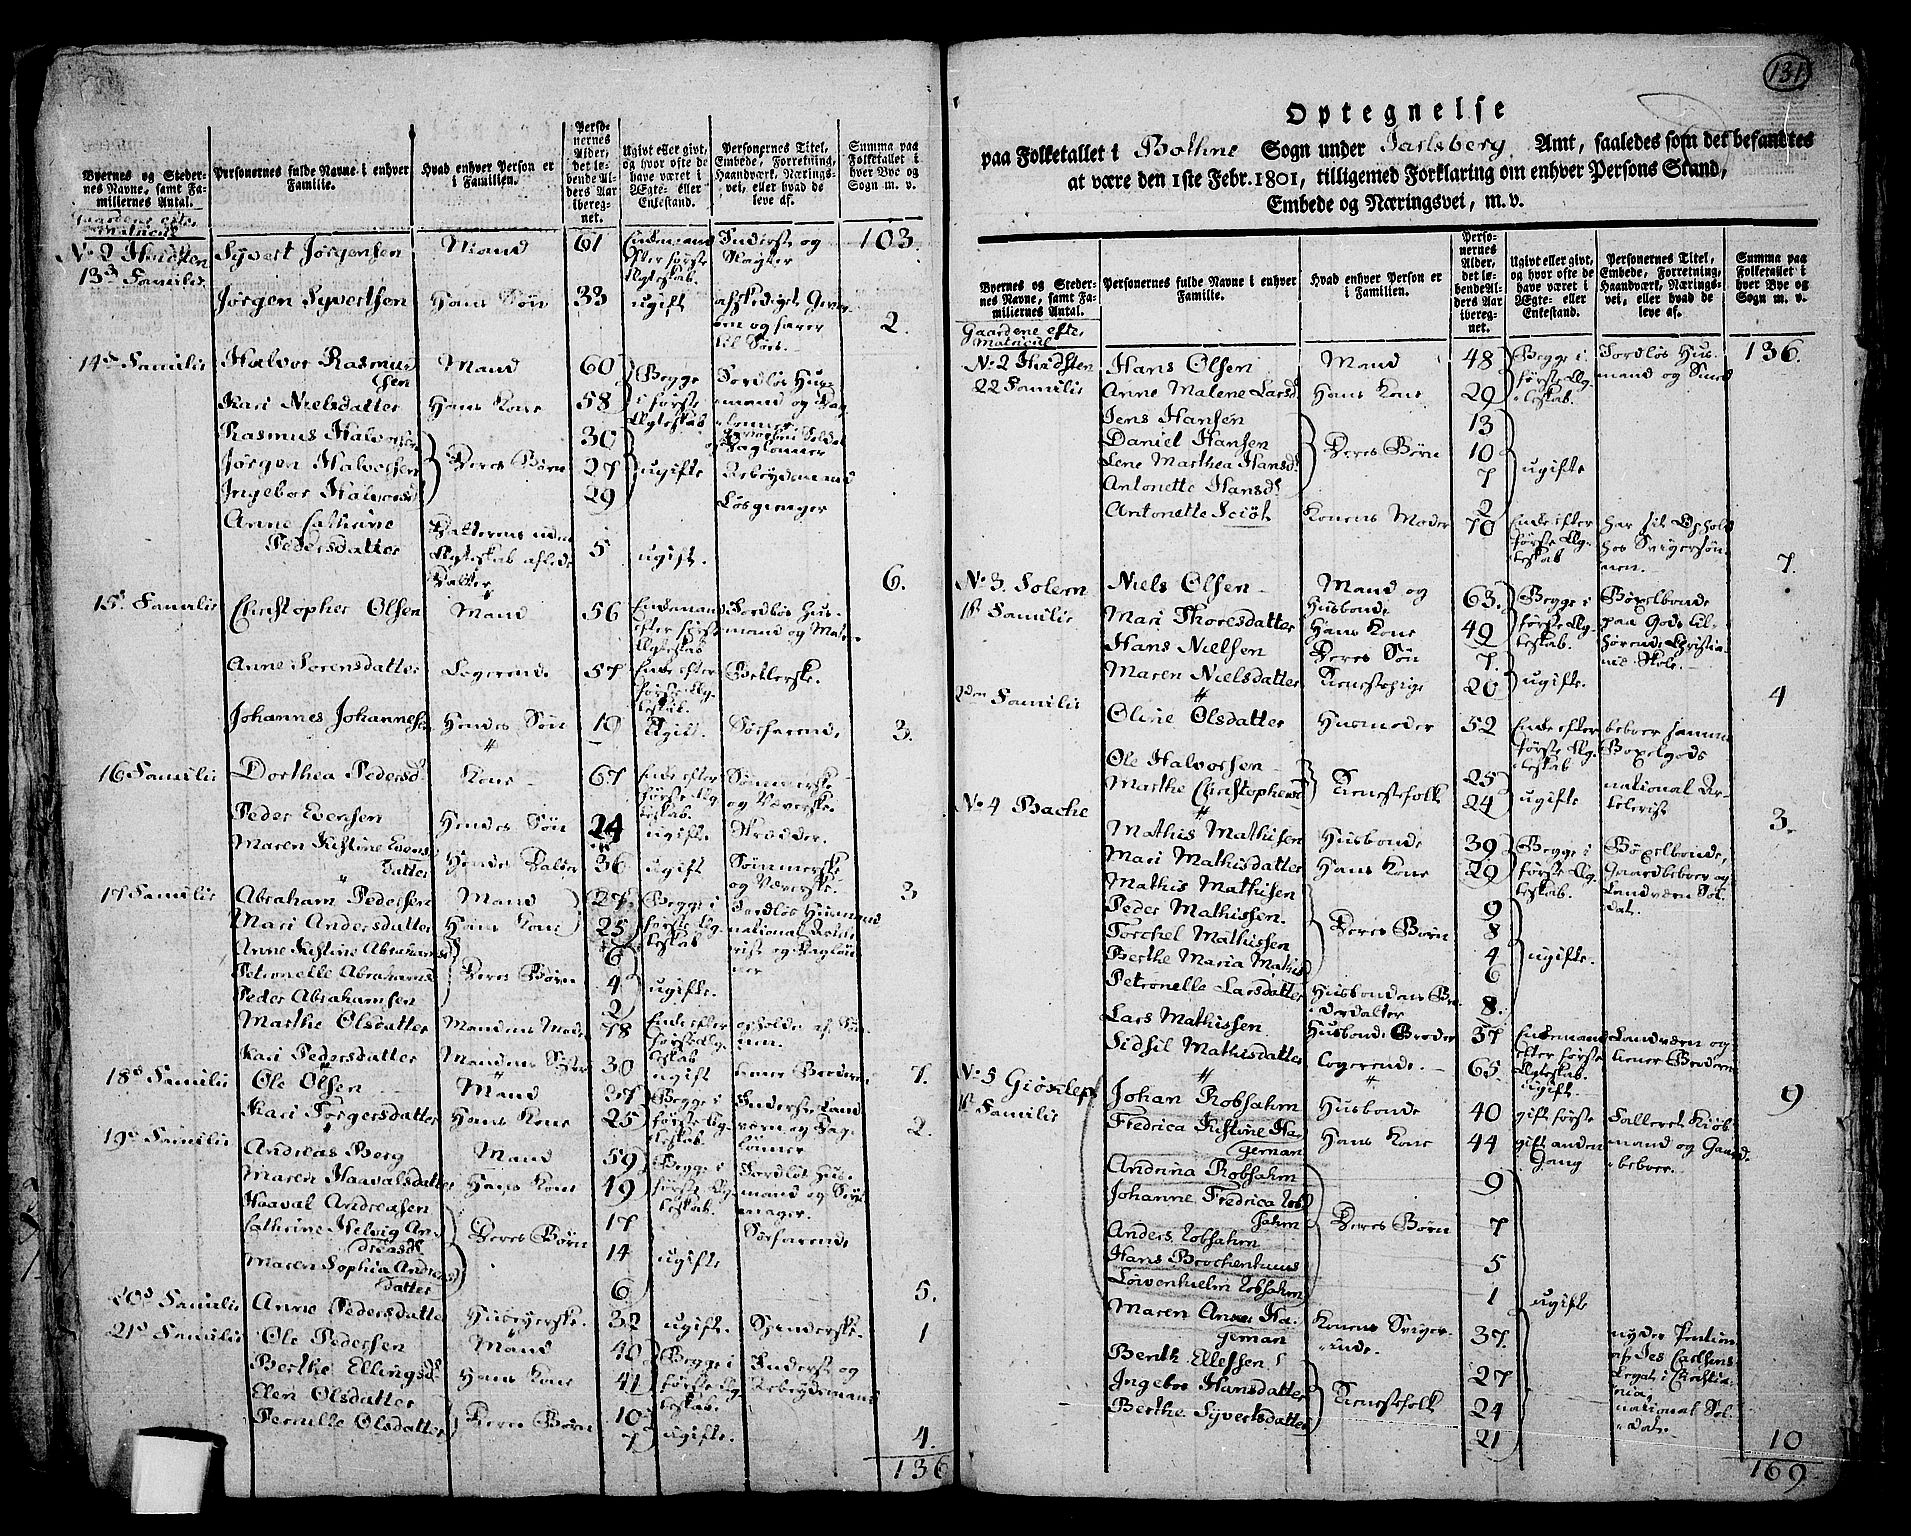 131
Optegnelse
paa Folketallet i Bothne Sogn under Jarlsberg Amt, saaledes som det befandtes
at være den 1ste Febr. 1801, tilligemed Forklaring om enhver Persons Stand,
Embede og Næringsvei, m. v.
Byernes og Stedernes Navne, samt Familiernes Antal.
Personernes fulde Navne i enhver Familie.
Hvad enhver Person er i Familien.
Personernes Alder, det løbende Alders Aar iberegnet.
Ugivt eller givt, og hvor ofte de have været i Ægte- eller Enkestand.
Personernes Titel, Embede, Forretning, Haandværk, Næringsvei, eller hvad de leve af.
Summa paa Folketallet i hver Bye og Sogn m. v.
Gaardene efter Matricul
No 2 Hvidsten
13d Familie
Syvert Jørgensen Mand 61 Enkemand efter første Ægteskab Inderst og 103.
Jørgen Syvertsen Hans Søn 33 ugift 2.
14d Familie Halvor Rasmussen Mand 60 Begge i første Ægteskab Jordløs Husmand og
Kari Nielsdatter Hans Kone 58
Rasmus Halvorsen 30
Jørgen Halvorsen Deres Børn 27 ugifte Arbeydsmand
Ingebor Halvorsd 29 Løsgienger
Anne Cathrine Pedersdatter Datterens uden Ægteskab aflede Datter 5 ugift. 6.
15d Familie Christopher Olsen Mand 56 Enkemand efter første Ægteskab Jordløs Husmand og
Anne Sørensdatter Logerende 57 Enke efter første Ægteskab. Betlerske.
Johannes Johannesen Hendes Søn 19 Ugift. Søefarende 3.
16 Familie Dorthea Pedersd Kone 67 Enke efter første Ægteskab. Sømmerske og Væverske.
Peder Evensen Hendes Søn 24 ugift Skrædder.
Maren Kistine Evensdatter Hendes Datter 36 ugift Sømmerske og Væverske. 3
17 Familie Abraham Pedersen Mand 27 Begge i første Ægteskab Jordløs Husmand national Artillerist og Dagløner
Mari Andersdatter Hans Kone 25
Anne Kistine Abrahamsd 6
Petronelle Abrahamsd Deres Børn 4 ugifte.
Peder Abrahamsen 2
Marthe Olsdatter Mandens Moder 78 Enke efter første Ægteskab opholdes af Sønnen.
Kari Pedersdatter Mandens Søster 30 ugift tiener Broderen 7.
18d Familie Ole Olsen Mand 37 Begge i første Ægteskab. Inderst Landværn og Dagløner
Kari Torgersdatter Hans Kone 25 2.
19d Familie Andreas Berg Mand 59 Begge i første Ægteskab. Jordløs Husmand og
Maren Haavalsdatter Hans Kone 49
Haaval Andreasen 17 Søefarende
Cathrine Helvig Andreasd Deres Børn 14 ugifte
Maren Sophia Andreasdatter 6 5.
20d Familie Anne Pedersdatter Huusyerske. 32 ugift. Spinderske. 1
21d Familie Ole Pedersen Mand 40 Begge i første Ægteskab. Inderst og Arbeydsmand
Berthe Ellingsd Hans Kone 41
Elen Olsdatter 10
Pernille Olsdatter Deres Børn 7 ugifte. 4.
136
Byernes og Stedernes Navne, samt Familiernes Antal.
Personernes fulde Navne i enhver Familie.
Hvad enhver Person er i Familien.
Personernes Alder, det løbende Alders Aar iberegnet.
Ugivt eller givt, og hvor ofte de have været i Ægte- eller Enkestand.
Personernes Titel, Embede, Forretning, Haandværk, Næringsvei, eller hvad de leve af.
Summa paa Folketallet i hver Bye og Sogn m. v.
Gaardene efter Matricul
No 2 Hvidsten
22 Familie
Hans Olsen Mand 48 Begge i første Ægteskab Jordløs Husmand og Smed 136.
Anne Malene Larsd Hans Kone 29
Jens Hansen 13
Daniel Hansen Deres Børn 10 ugifte
Lene Marthea Hansd 7
Antonette Hansd 2
Antonette Konens Moder 70 Enke efter første Ægteskab har sit Ophold hos Svigersønnen. 7.
No 3. Solem
1st Familie
Niels Olsen Mand og Husbonde 63. Begge i første Ægteskab. Bøxelbonde paa Gods tilhørende Christianis Skole.
Mari Thoresdatter Hans Kone 49
Hans Nielsen Deres Søn 7. ugifte.
Maren Nielsdatter Tienestepige 20 4
2den Familie Oline Olsdatter Huusmoder 52 Enke efter første Ægteskab beboer samme Boxelgods
Ole Halvorsen Tienestefolk 25 ugifte national Artelerist
Marthe Christophersd 24 3.
No 4 Bache
Mathis Mathisen Husbonde 39 Begge i første Ægteskab. Bøxelbonde, Gaardbeboer og Landværn Soldat.
Mari Mathisdatter Hans Kone 29
Mathis Mathisen 9
Peder Mathissen. Deres Børn 8 ugifte.
Torchel Mathissen 4
Berthe Maria Mathisd 6
Petronelle Larsdatter Husbondens Broderdatter 8.
Lars Mathissen Husbonde Broder 37 Enkemand efter første Ægteskab. Landværn og tiener Broderen
Sidsil Mathisdatter Logerende. 65. ugift. 9
No 5 Giøxlep
1st Familie
Johan Robsahm Husbonde 40 gift første
Fredrica Kistine Hagerman Hans Kone 44 gift anden Gang
Andrina Robsahm 9
Johanne Fredrica Robsahm Deres Børn 7
Anders Robsahm 5
Hans Brochenhuus Løvenhielm Robsahm 1 ugifte
Maren Anne Hagerman Konens 37. nyder Pention af Jes Carlsens Legat i Christiania
Benth Ellefsen 27 national Soldat.
Ingebor Hansdatter Tienestefolk 24
Berthe Syvertsdatter 21 10
169.